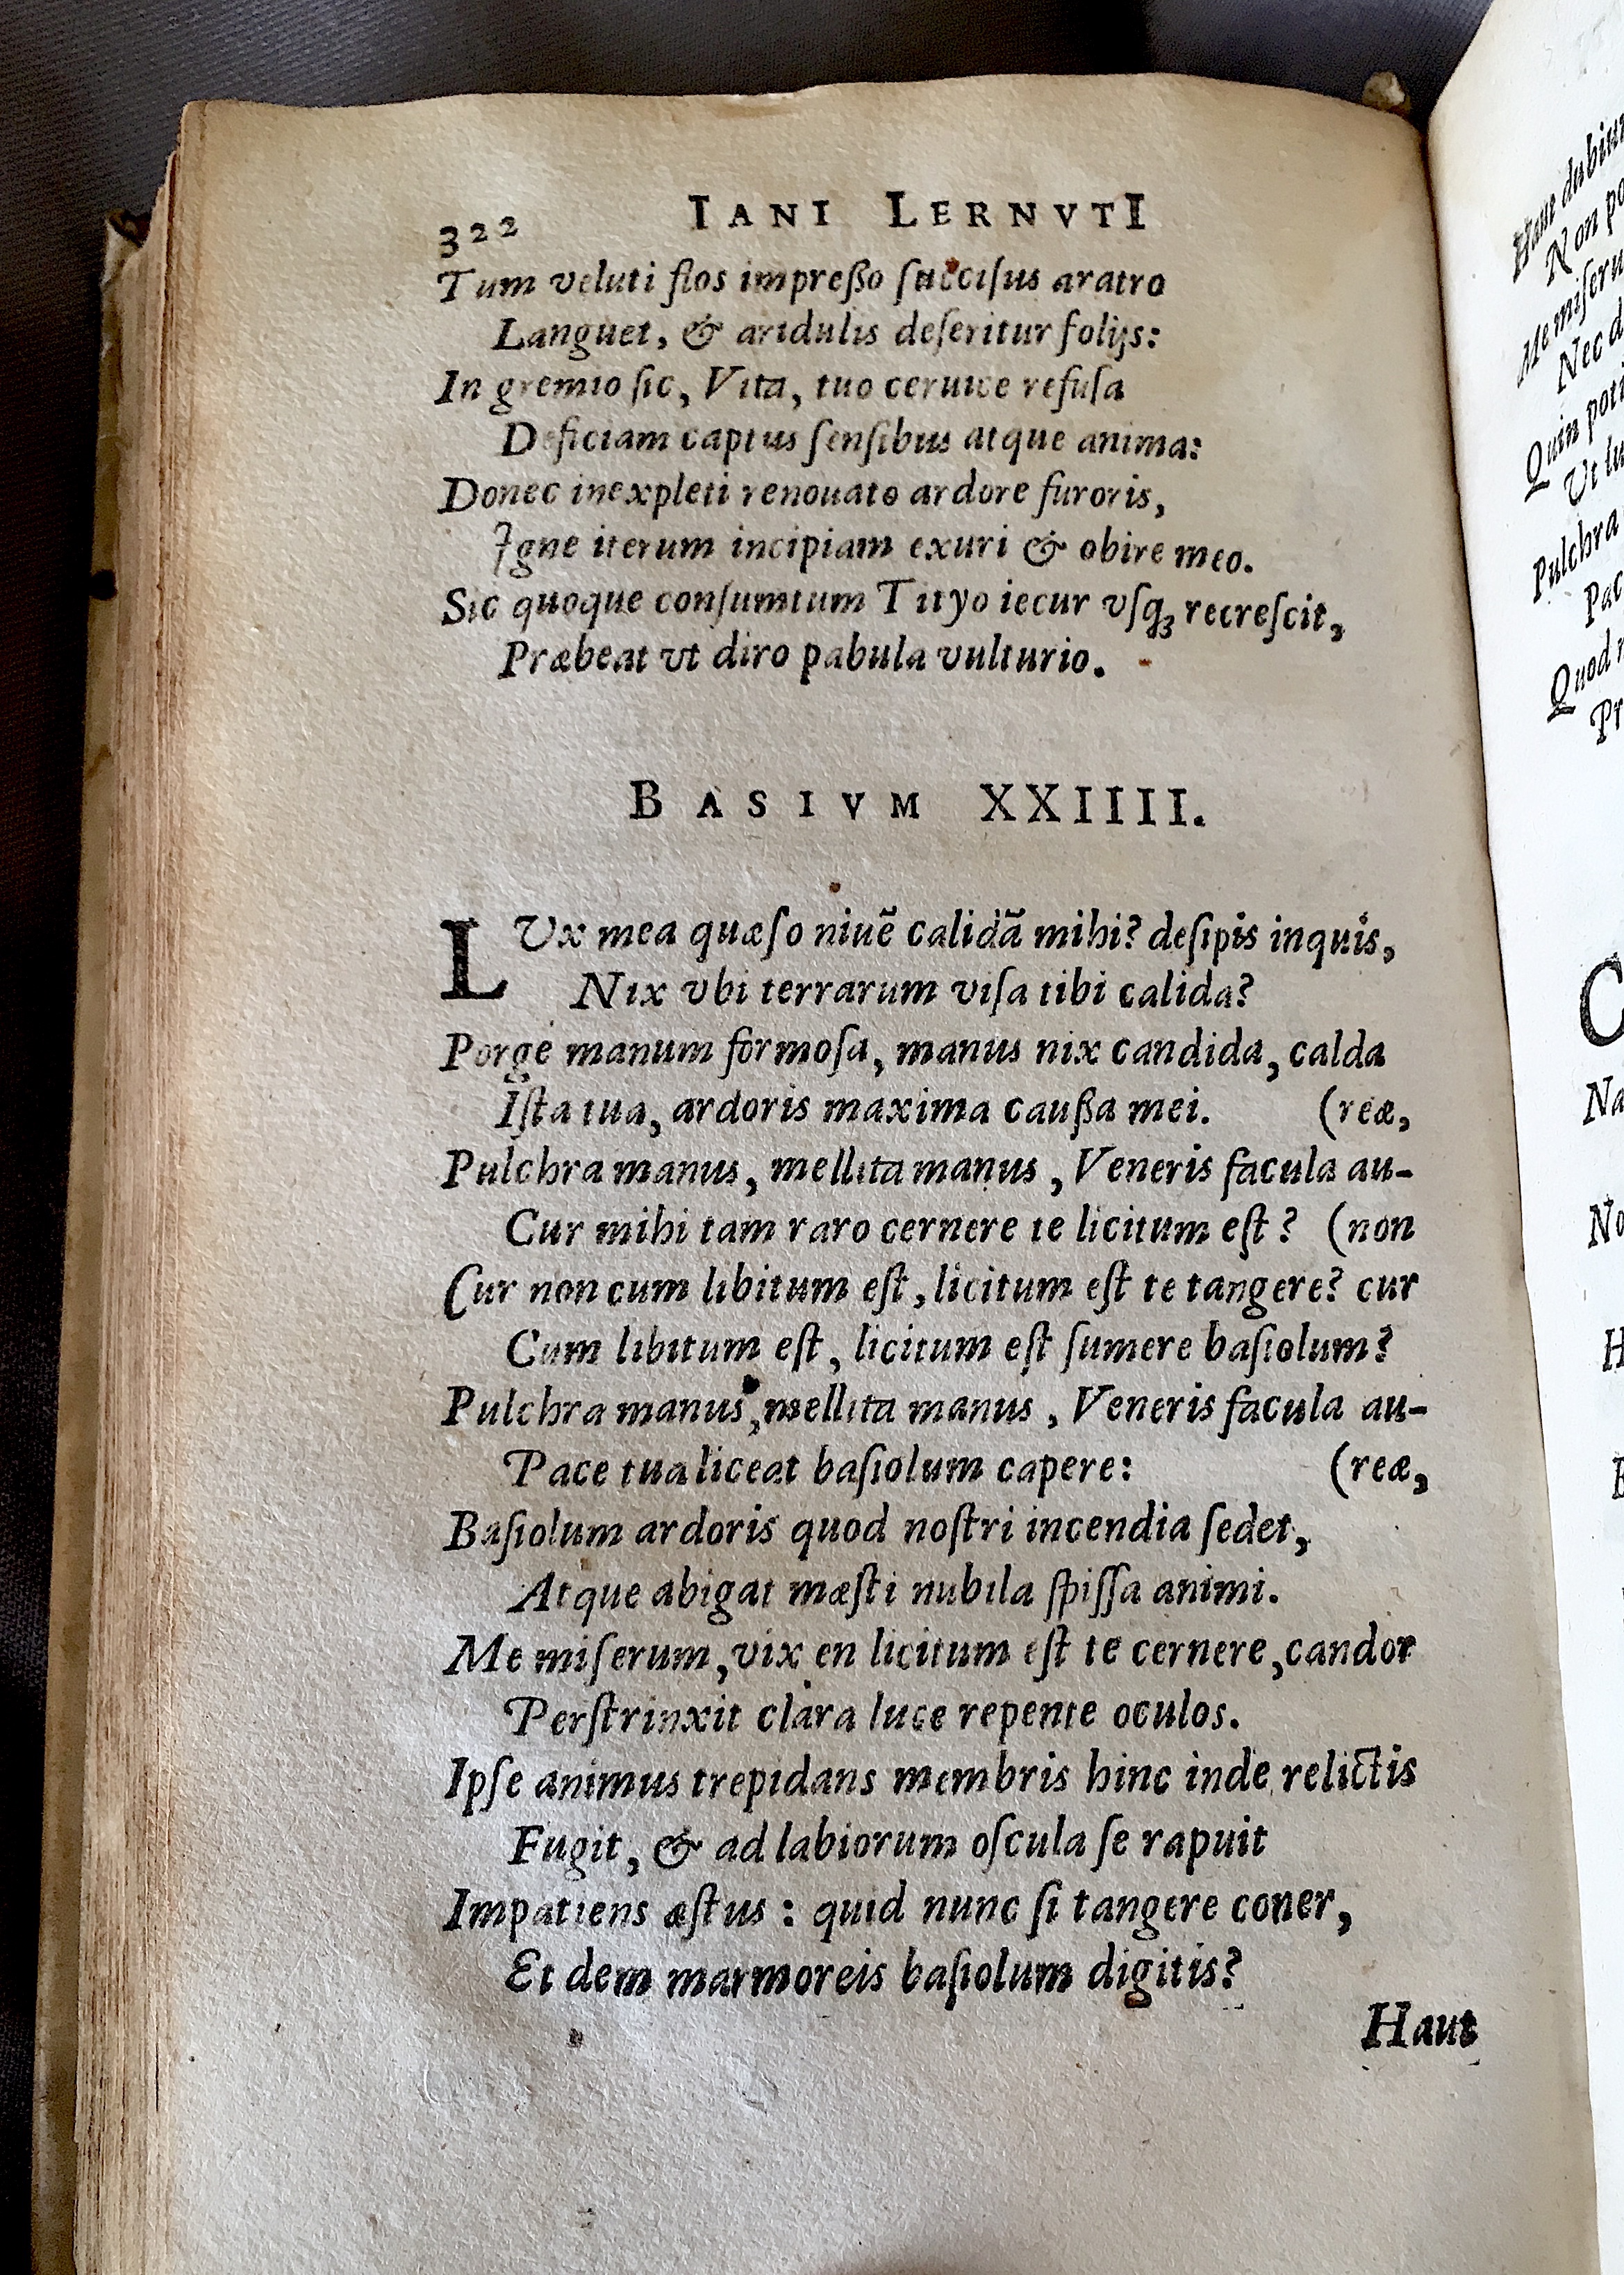 322 IANI LERNVTI
Tum veluti flos impreßo ſucciſus aratro
Languet, & aridulis deſeritur folijs:
In gremio ſic, Vita, tuo ceruice refuſa
Deficiam captus ſenſibus atque anima:
Donec inexpleti renouato ardore furoris,
Igne iterum incipiam exuri & obire meo.
Sic quoque conſumtum Tityo iecur vſqꝫ recreſcit,
Præbeat vt diro pabula vulturio.
BASIVM XXIIII.
LVx mea quæſo niuẽ calidã mihi? deſipis inquis,
Nix vbi terrarum viſa tibi calida?
Porge manum formoſa, manus nix candida, calda
Iſta tua, ardoris maxima caußa mei. (reæ,
Pulchra manus, mellita manus, Veneris facula au-
Cur mihi tam raro cernere te licitum eſt? (non
Cur non cum libitum eſt, licitum eſt te tangere? cur
Cum libitum eſt, licitum eſt ſumere baſiolum?
Pulchra manus, mellita manus, Veneris facula au-
Pace tua liceat baſiolum capere: (reæ,
Baſiolum ardoris quod noſtri incendia ſedet,
Atque abigat mæſti nubila ſpiſſa animi.
Me miſerum, vix en licitum eſt te cernere, candor
Perſtrinxit clara luce repente oculos.
Ipſe animus trepidans membris hinc inde relictis
Fugit, & ad labiorum oſcula ſe rapuit
Impatiens æſtus: quid nunc ſi tangere coner,
Et dem marmoreis baſiolum digitis?
Haut
Haut dubium
Non po
Me miſeru
Nec d
Quin poti
Vt lu
Pulchra
Pac
Quod
Pr
C
Na
No
H